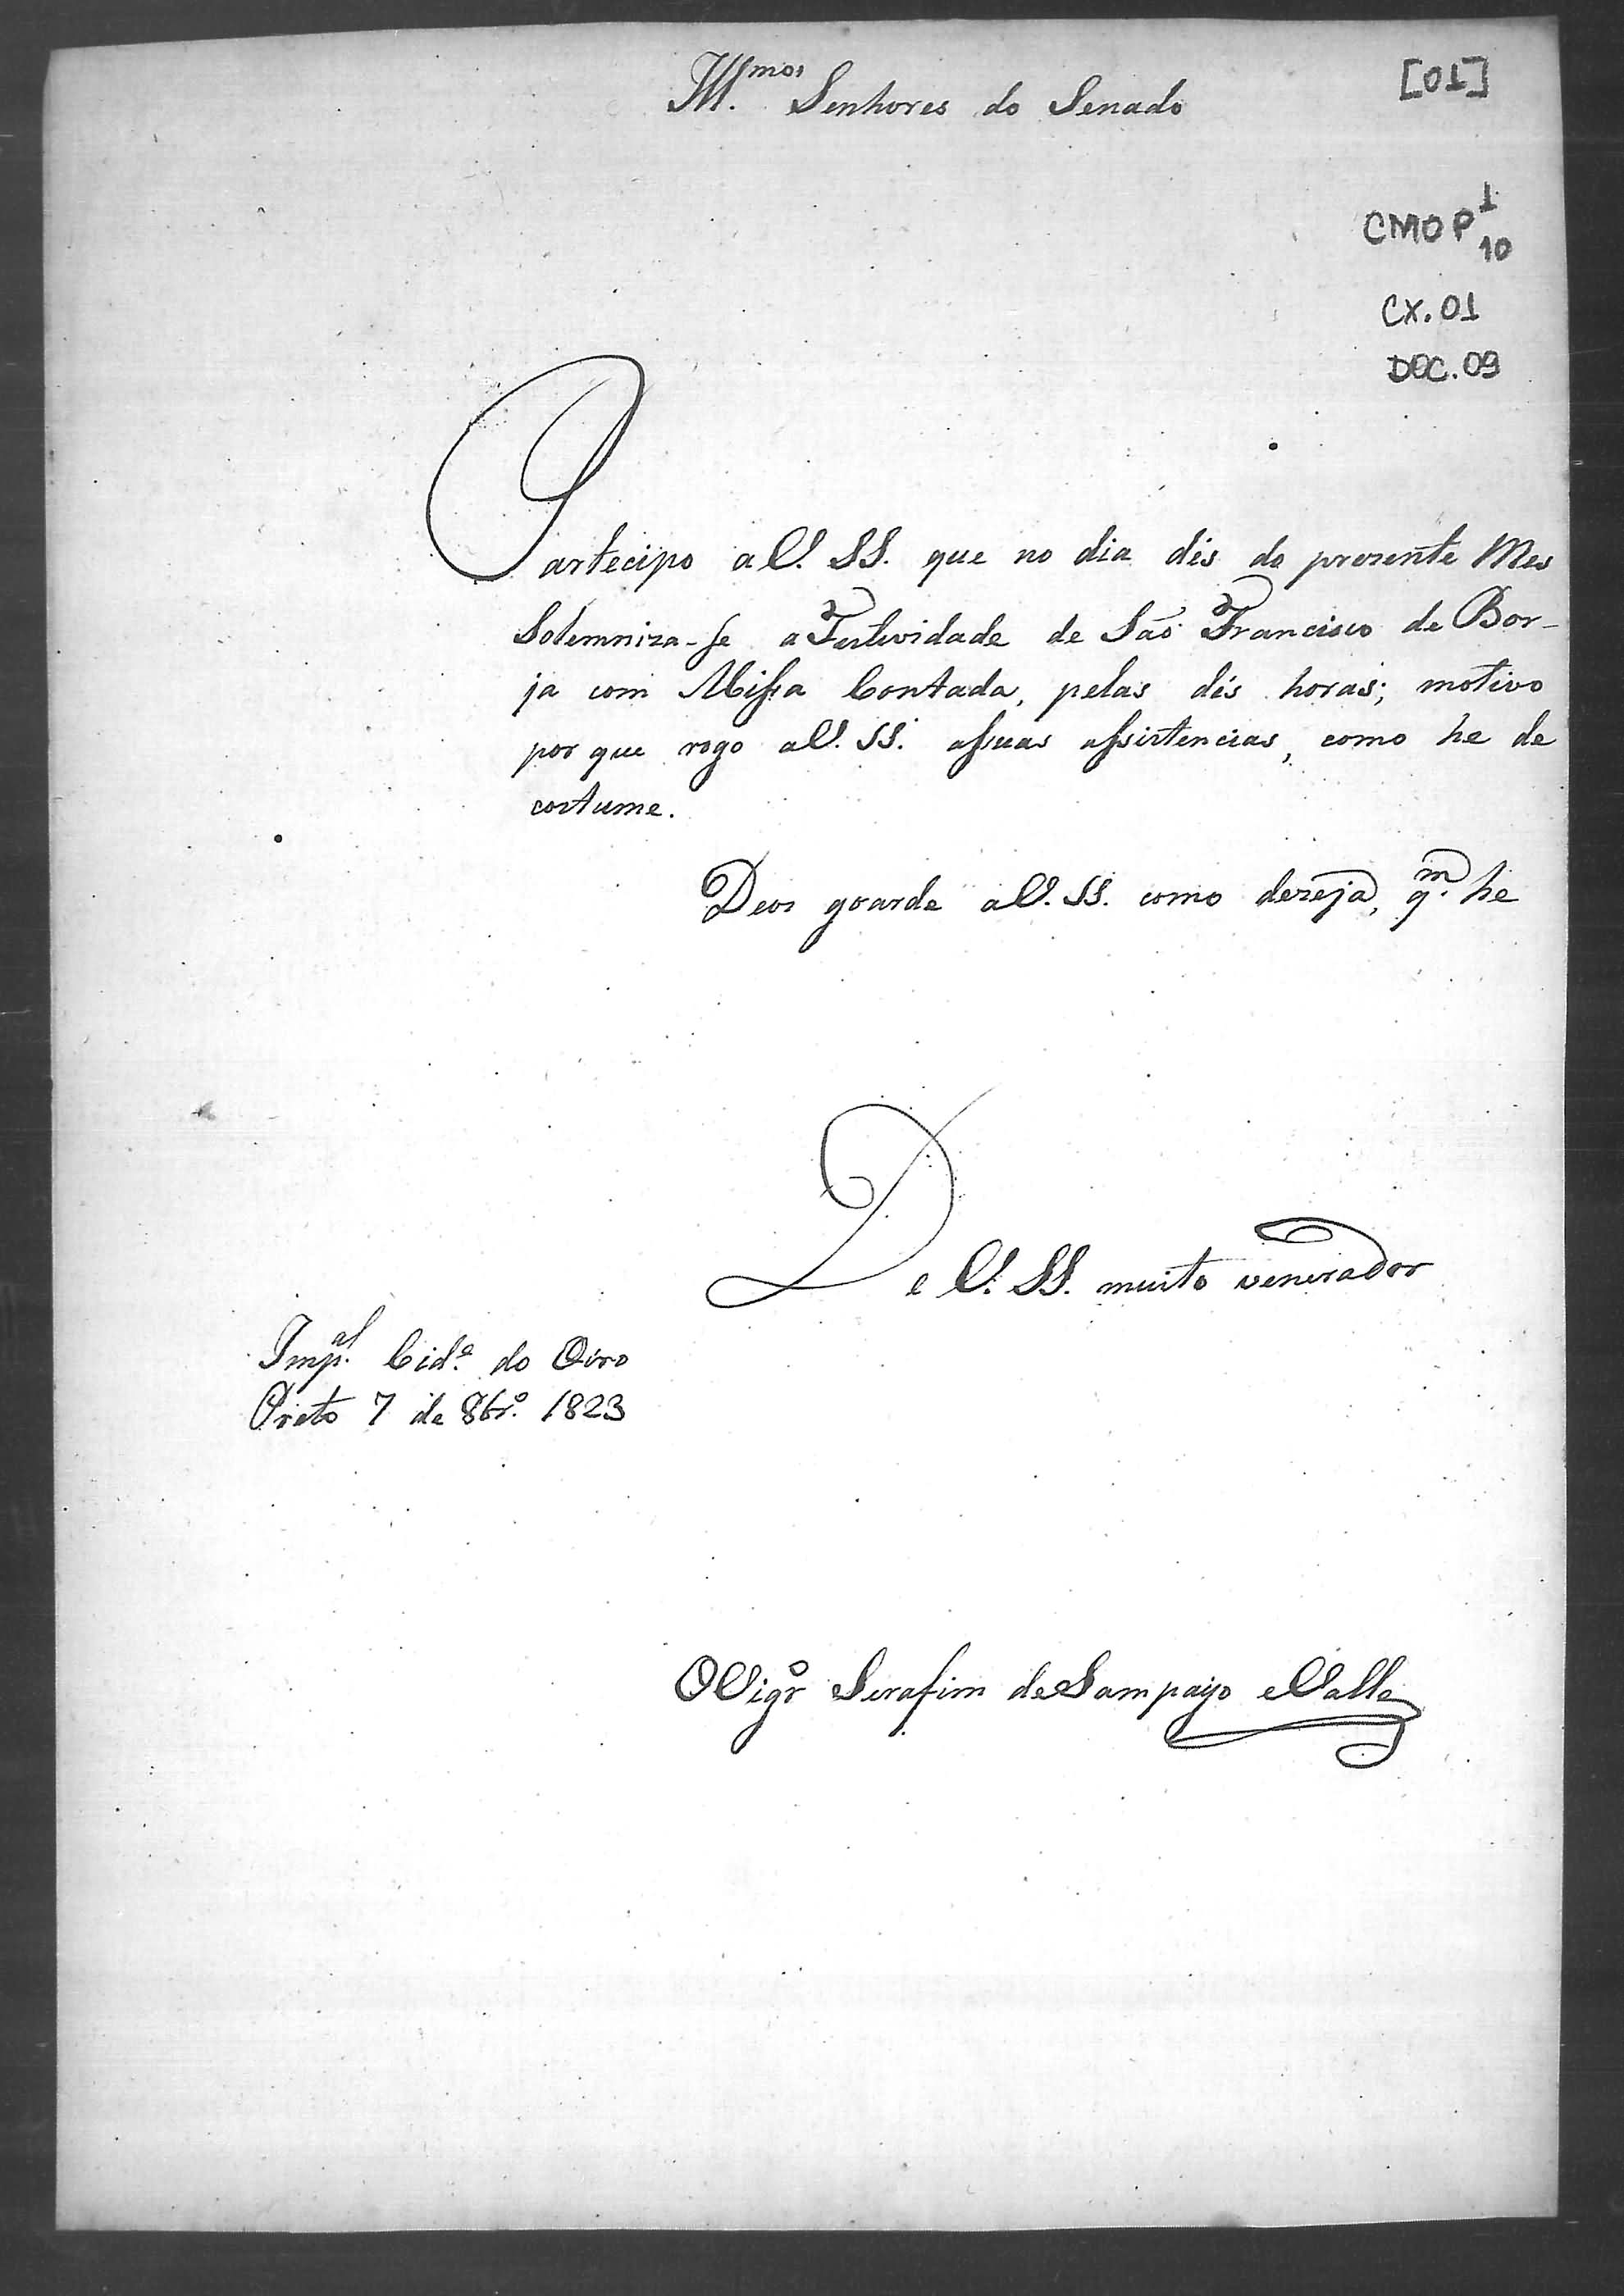 Ill.mos Senhores do Senado
[01]
CMOP 1
10
CX. 01
DOC. 09
Partecipo a V. SS. que no dia dés do prezente Mes
Solemniza-se a Festividade de São Francisco de Bor-
ja com Missa Contada, pelas dés horas; motivo
por que rogo a V. SS. assuas assistencias, como he de
costume.
Deos goarde a V. SS. como dezeja, q.m he
De V. SS. muito venerador
Imp.al Cid.e do Oiro
Preto 7 de 8br.o 1823
O Vigr.o Serafim de Sampayo e Valle